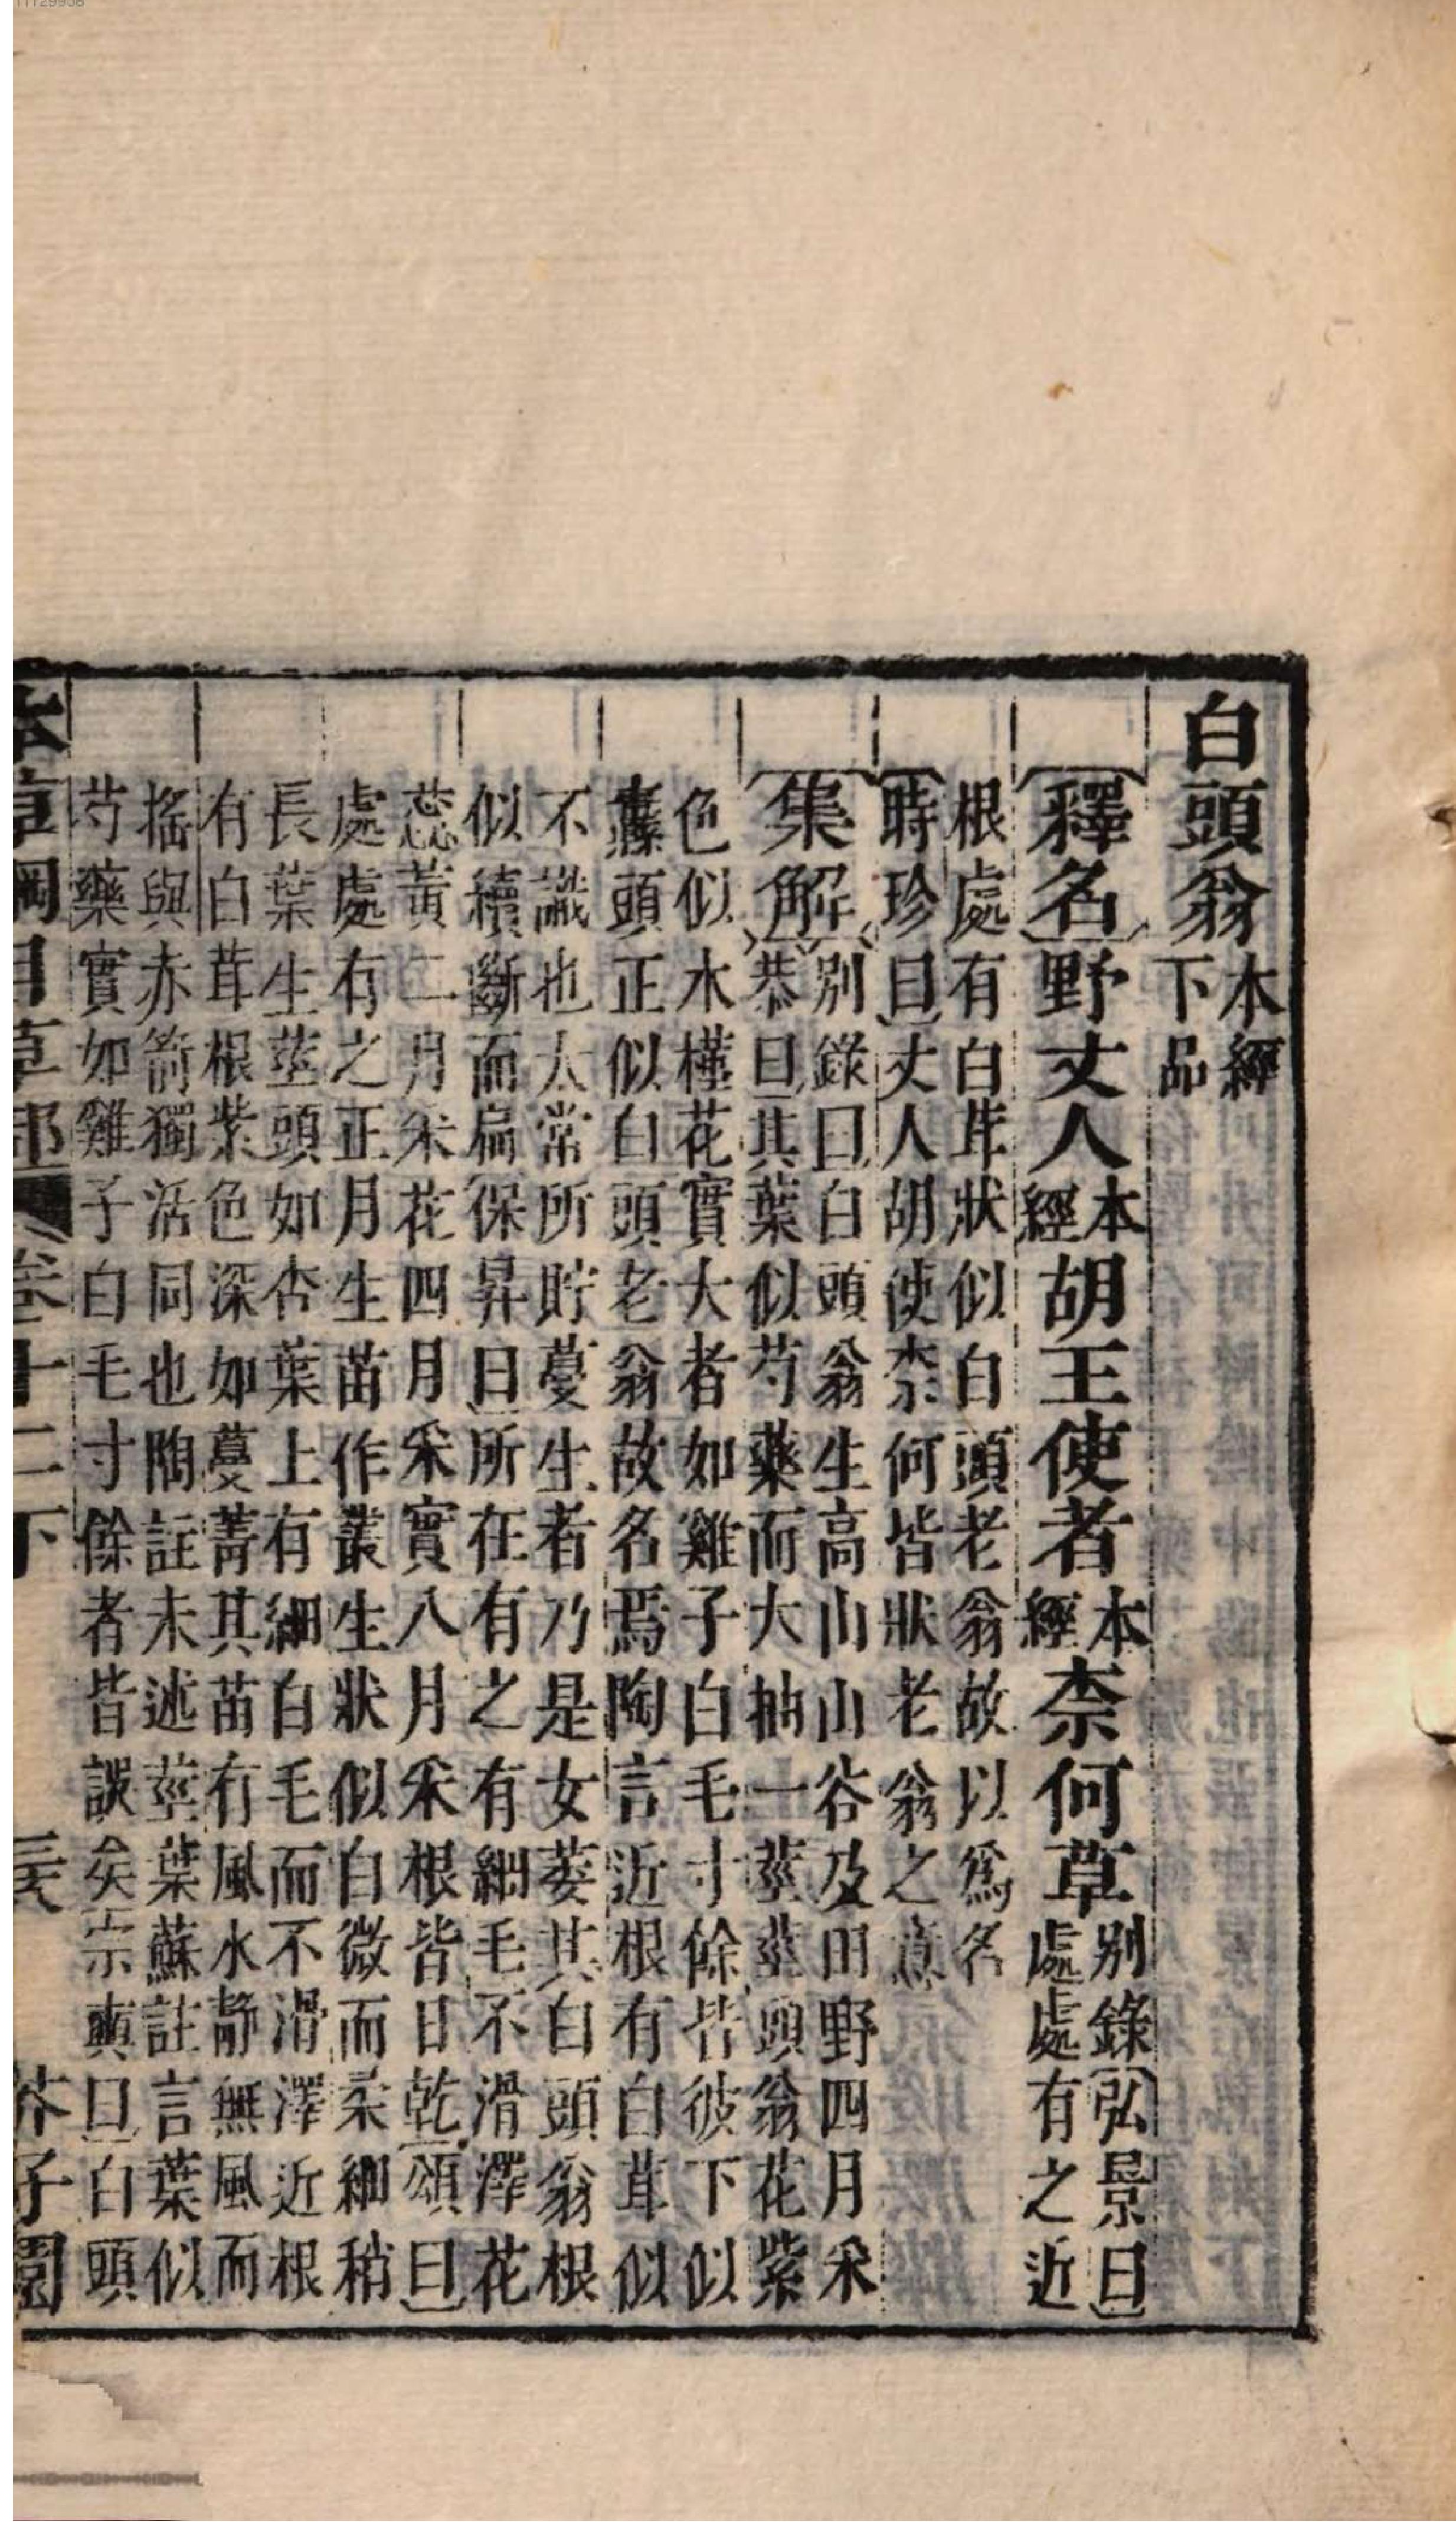 白頭翁本經下品
〔釋名〕野丈人本經胡王使者本經奈何草別錄〔弘景曰〕處處有之近
根處有白茸狀似白頭老翁故以爲名
〔時珍曰〕丈人胡使奈何皆狀老翁之意
〔集解〕別錄曰白頭翁生高山山谷及田野四月采
恭曰其葉似芍藥而大抽一莖莖頭翁花紫
色似木槿花實大者如雞子白毛寸餘皆彼下似
纛頭正似白頭老翁故名焉陶言近根有白茸似
不識也太常所貯蔓生者乃是女萎其白頭翁根
似續斷而扁〔保昇曰〕所在有之有細毛不滑澤花
蕊黃二月采花四月采實八月采根皆日乾〔頌曰〕
處處有之正月生苗作叢生狀似白微而柔細稍
長葉生莖頭如杏葉上有細白毛而不滑澤近根
有白茸根紫色深如蔓菁其苗有風水靜無風而
搖與赤箭獨活同也陶註未述莖葉蘇註言葉似
芍藥實如雞子白毛寸餘者皆誤矣宗奭曰〕白頭
本草綱目草部 卷十二下 芥子園